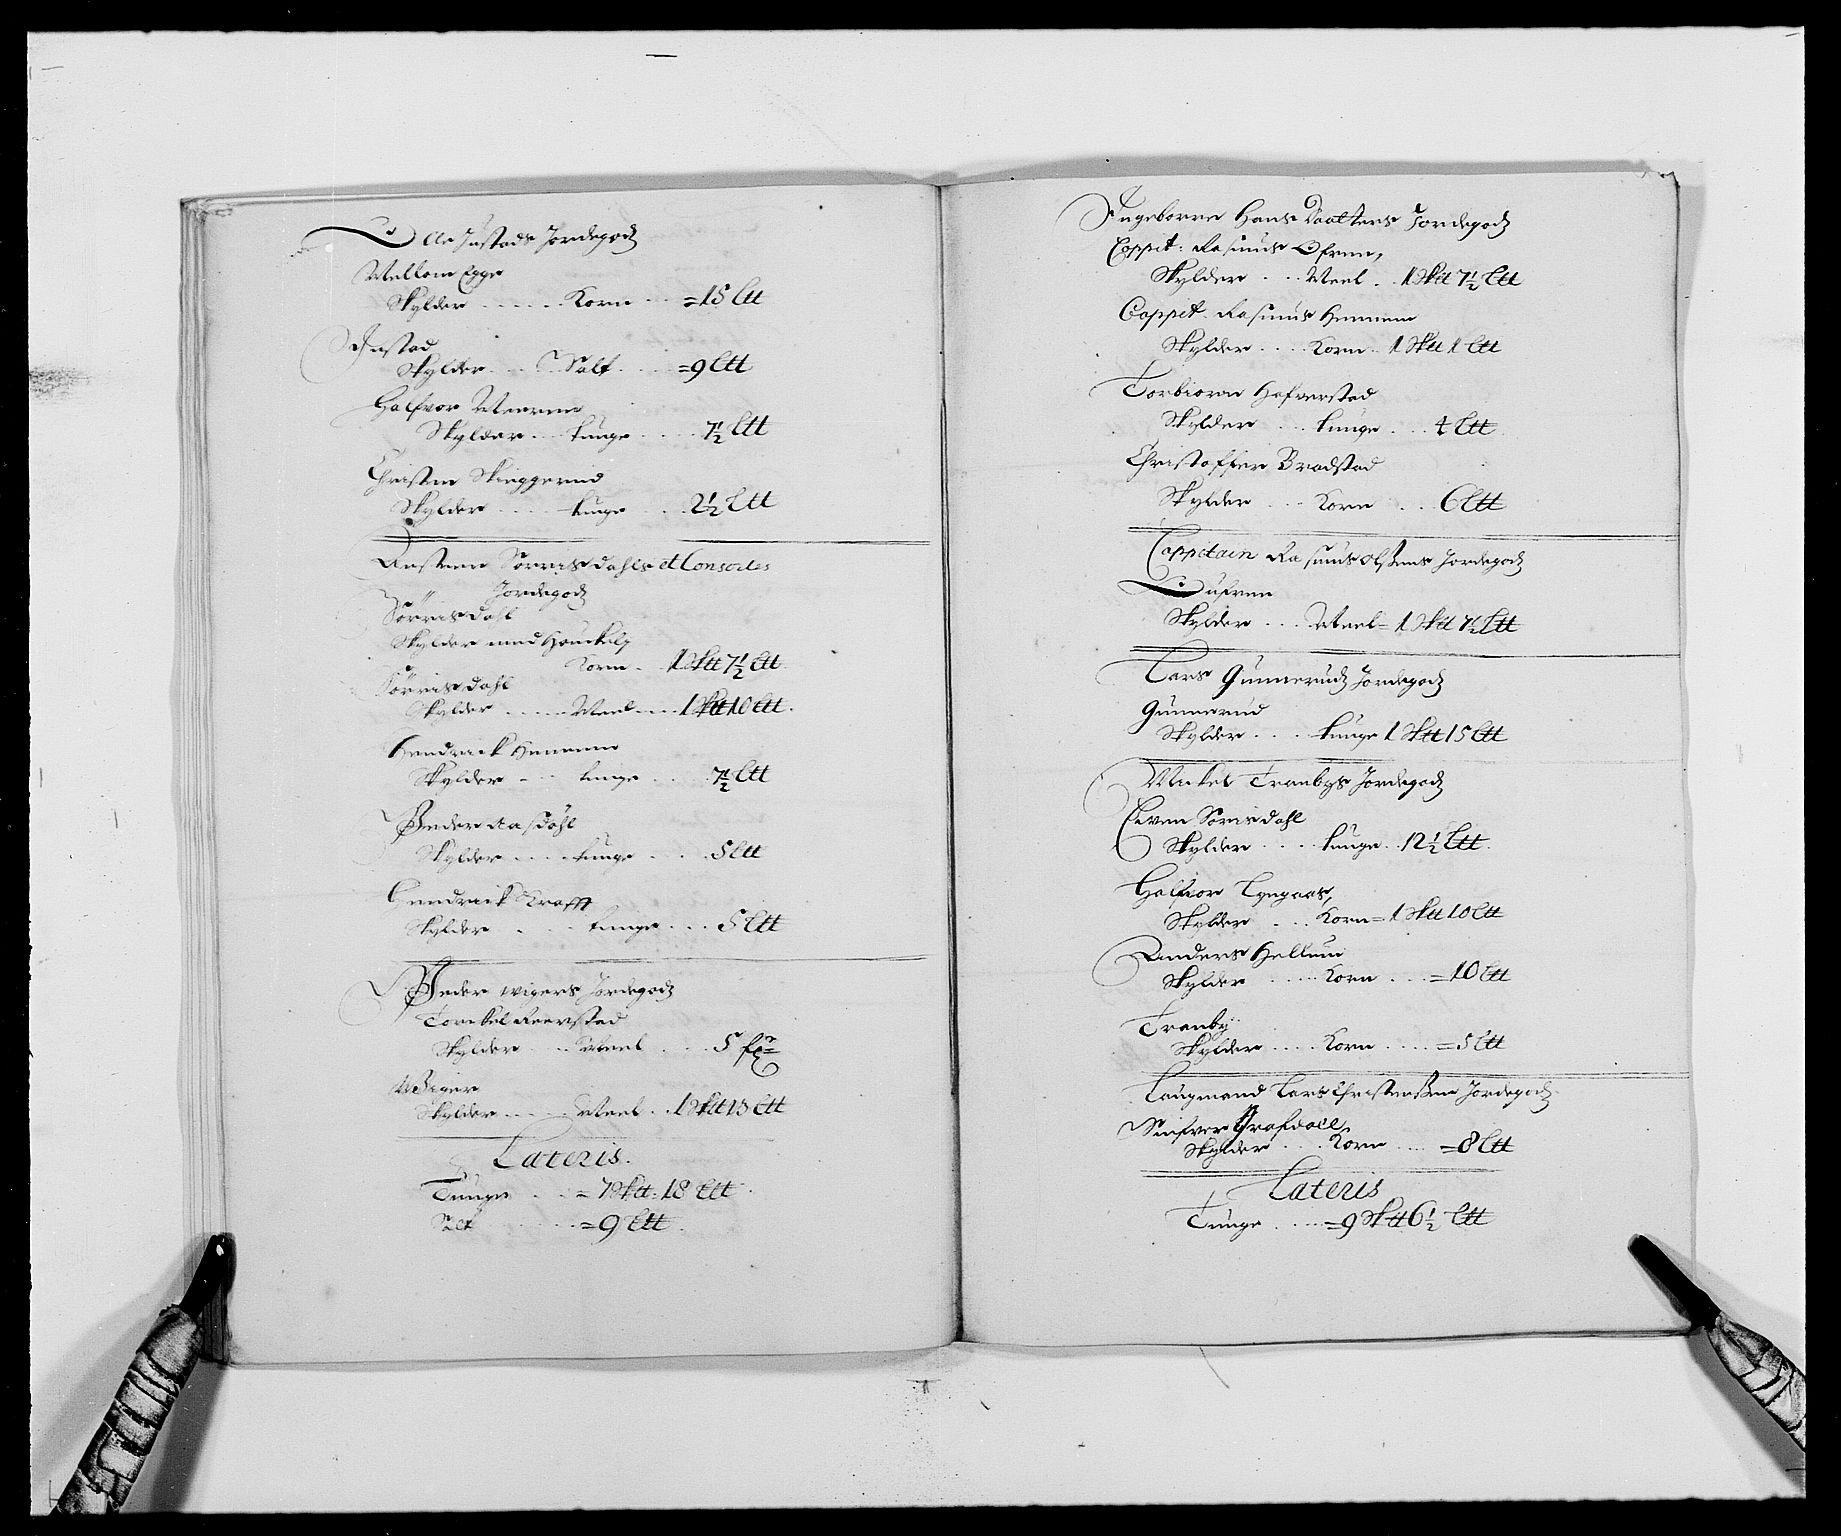 Jnstads Jordegodz
Mellom Egge
Skylder ..... Korn ... =15 Ltt
Jnstad
Skylder ..... Salt .... =9 Ltt
Halfvor
Skylder ... tunge .... 7½ Ltt
Christen Skinggerud
Skylder .... tunge ... 2½ Ltt
Ansteen Sørrisdahls et Consortes
Jordegodz
Sørrisdahl
Skylder med
Korn .. 1 Sktt 7½ Ltt
Sørrisdahl
Skylder ..... Meel .... 1 Sktt 10 Ltt.
Hendrick Hennume
Skylder - ... tunge .... 7½ Ltt
Peder Aasdahl
Skylder ..... tunge .... 5 Ltt
Hendrick Krafft
Skylder . ... tunge ... 5 Ltt
Peder Wigers Jordegodz
Torckel Reerstad
Skylder ... Meel .... 5
Wiger
Skylder ..... Meel .. 1 Sktt 15 Ltt
Lateris.
Tunge ... = 7 Skt: 18 Ltt.
Salt ..... =9 Ltt.
Ingeborre Hans Daatters Jordegodz
Cappit: Rasmus Øfren,
Skylder ... Meel .. 1 Skt 7½ Ltt
Cappit. Rasmus Hennum
Skylder .... Korn .. 1 Sktt 1 Ltt
Torbiørn Hafverstad
Skylder ... tunge ... 4 Ltt
Christoffer Bradstad
Skylder ... Korn ... 6 Ltt
Cappitain Rasmus Olsens Jordegodz
Øufren
Skylder ... Meel = 1 Sktt 7½ Ltt
Lars Gunneruds Jordegodz
Gunnerud
Skylder .... tunge 1 Sktt 15 Ltt
Mickel Tranbys Jordegodz
Even Sørisdahl
Skylder ..... tunge .. 12½ Ltt.
Halfvor Lyngaas,
Skylder ... Korn = 1 Sktt 10 Ltt
Anders Hellum
Skylder ..... Korn .... =10 Ltt
Tranby
Skylder ..... Korn ..... =5 Ltt
Laugmand Lars Christensens Jordegodz
Siufver Grafdall,
Skylder ... Korn .... =8 Ltt
Lateris
Tunge ..... =9 Sktt 6½ Ltt